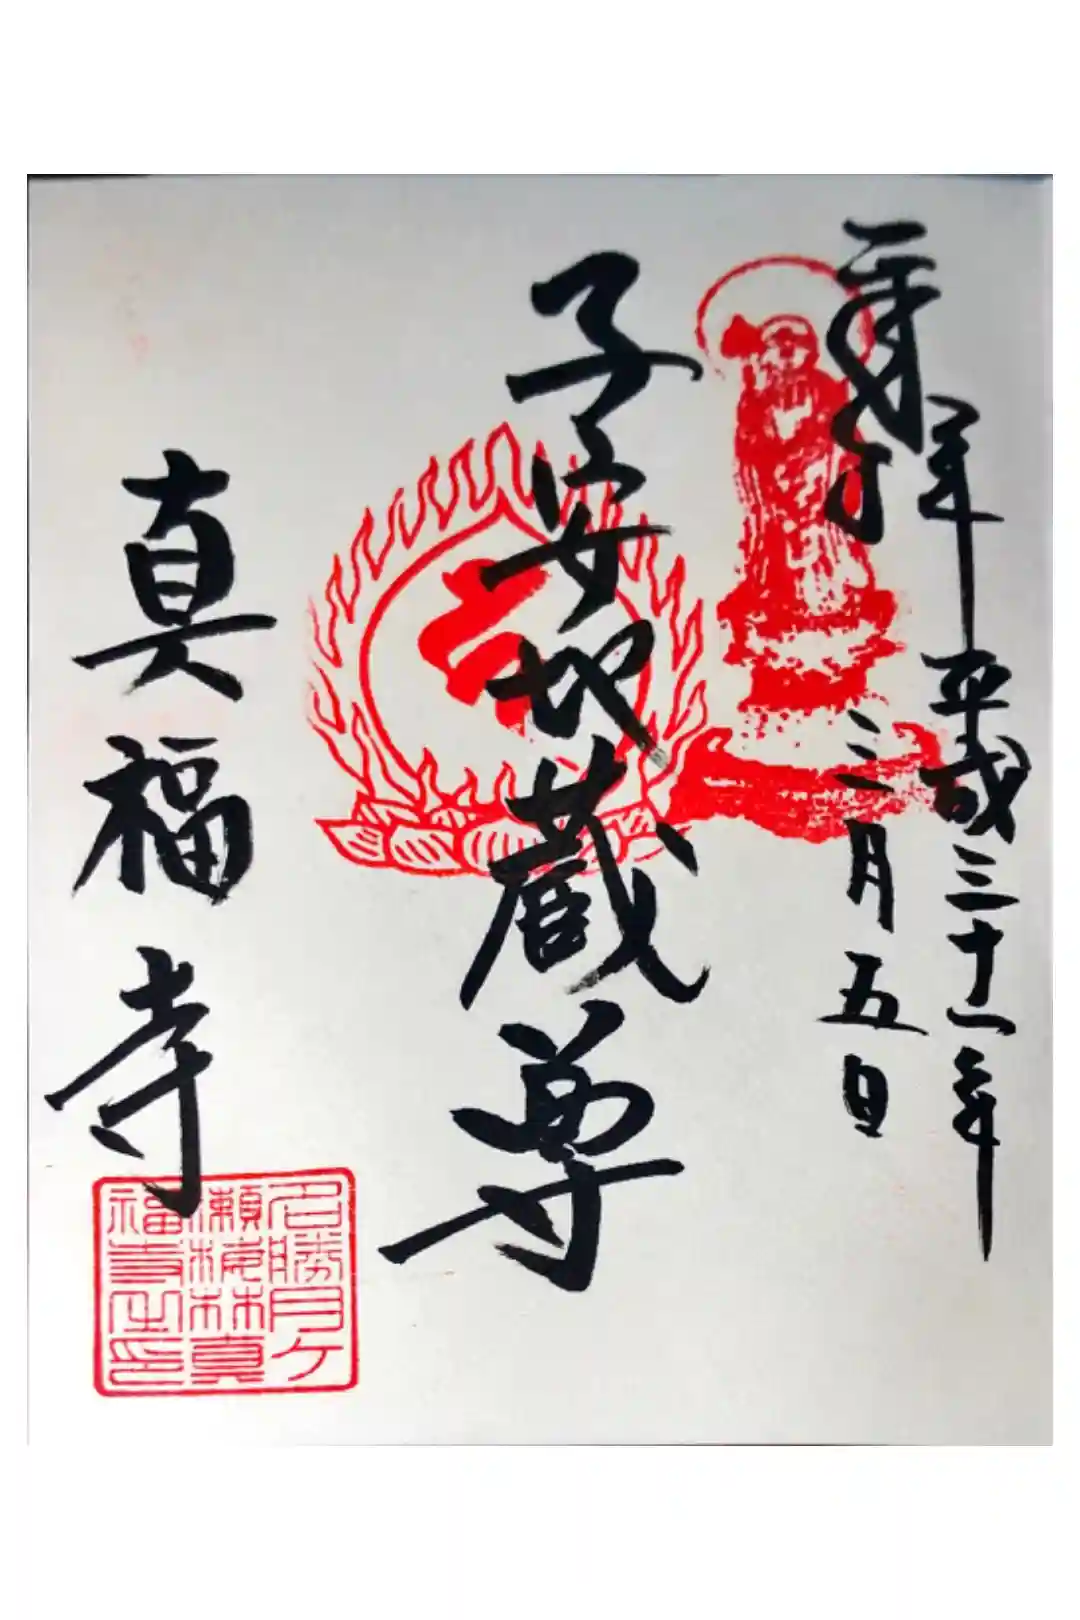 奉拝
平成三十一年
三月五日
子安地蔵尊
真福寺
名勝月ヶ
瀬梅林真
福寺之印